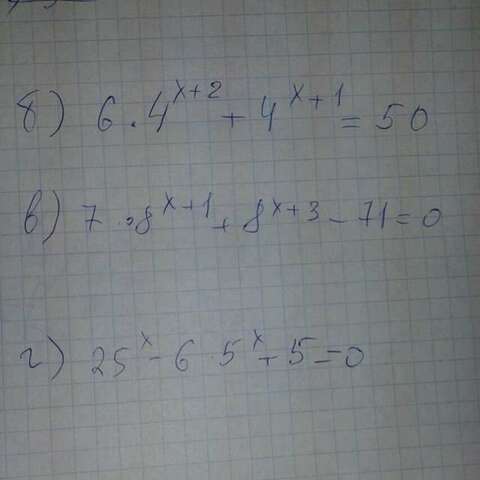 б) 6 · 4^{x+2} + 4^{x+1} = 50
в) 7 · 8^{x+1} + 8^{x+3} - 71 = 0
г) 25^x - 6 · 5^x + 5 = 0